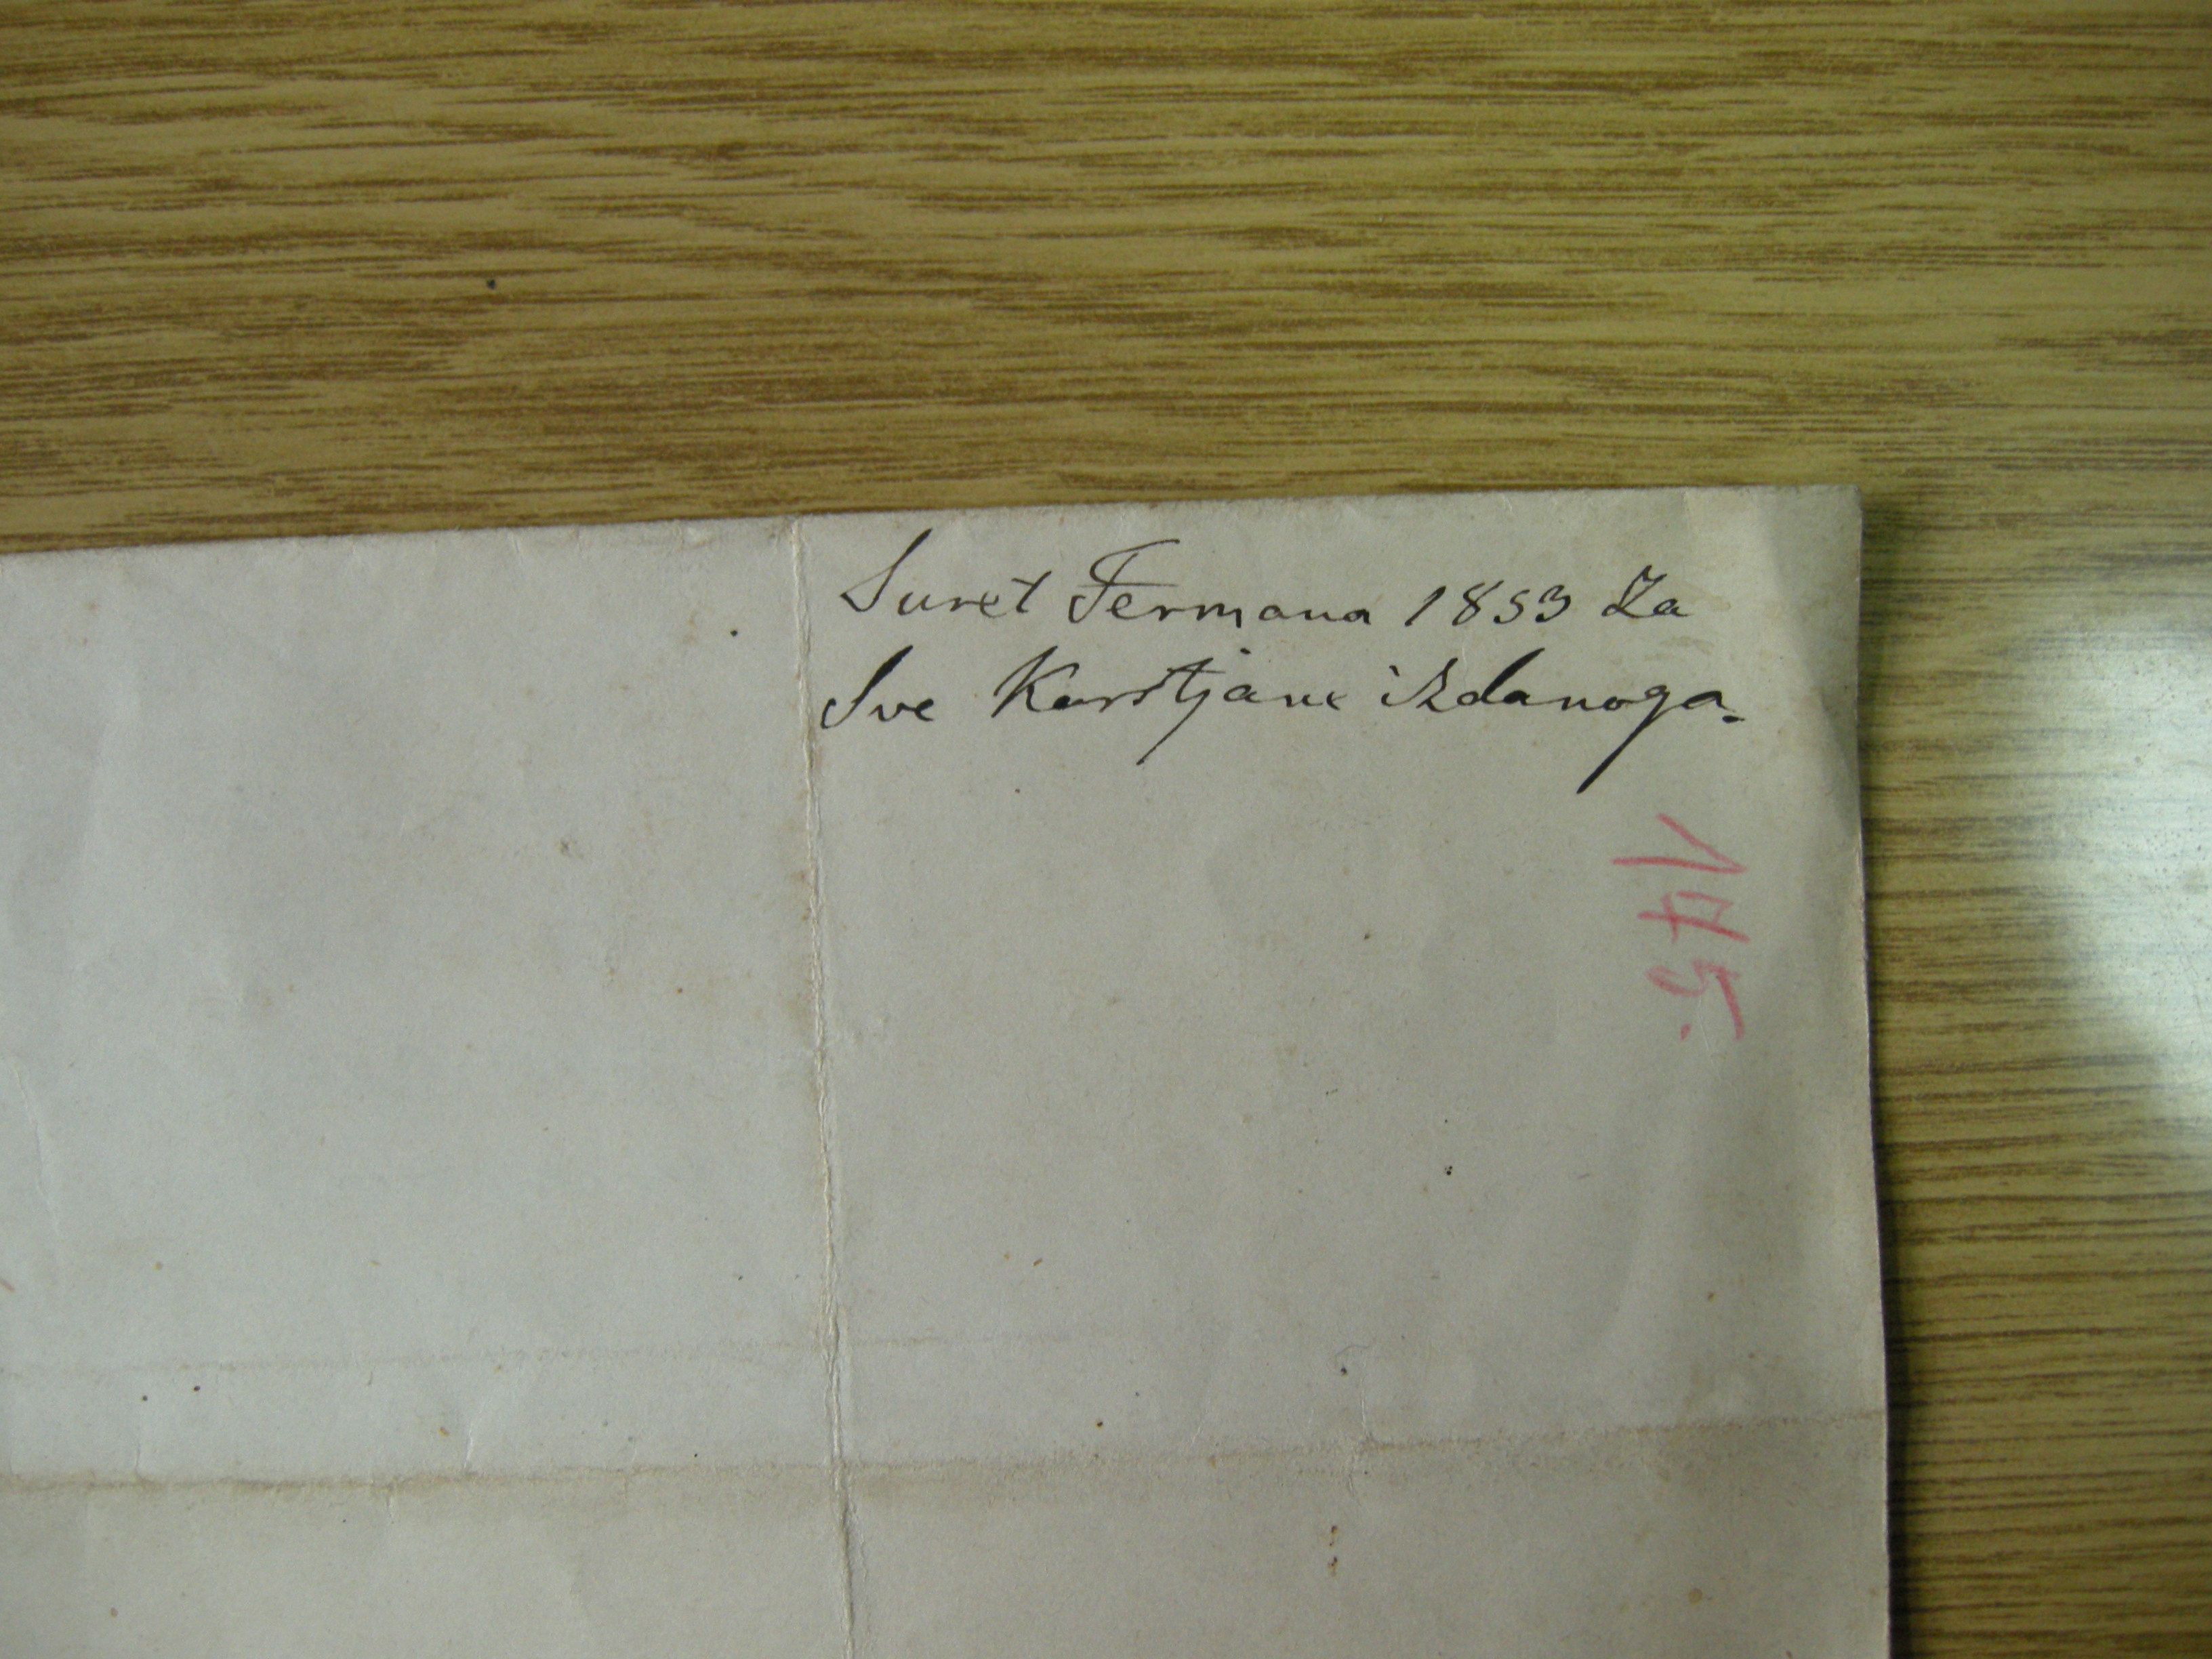 Suret Fermana 1853 Za
Sve Karstjane izdanoga.
145.